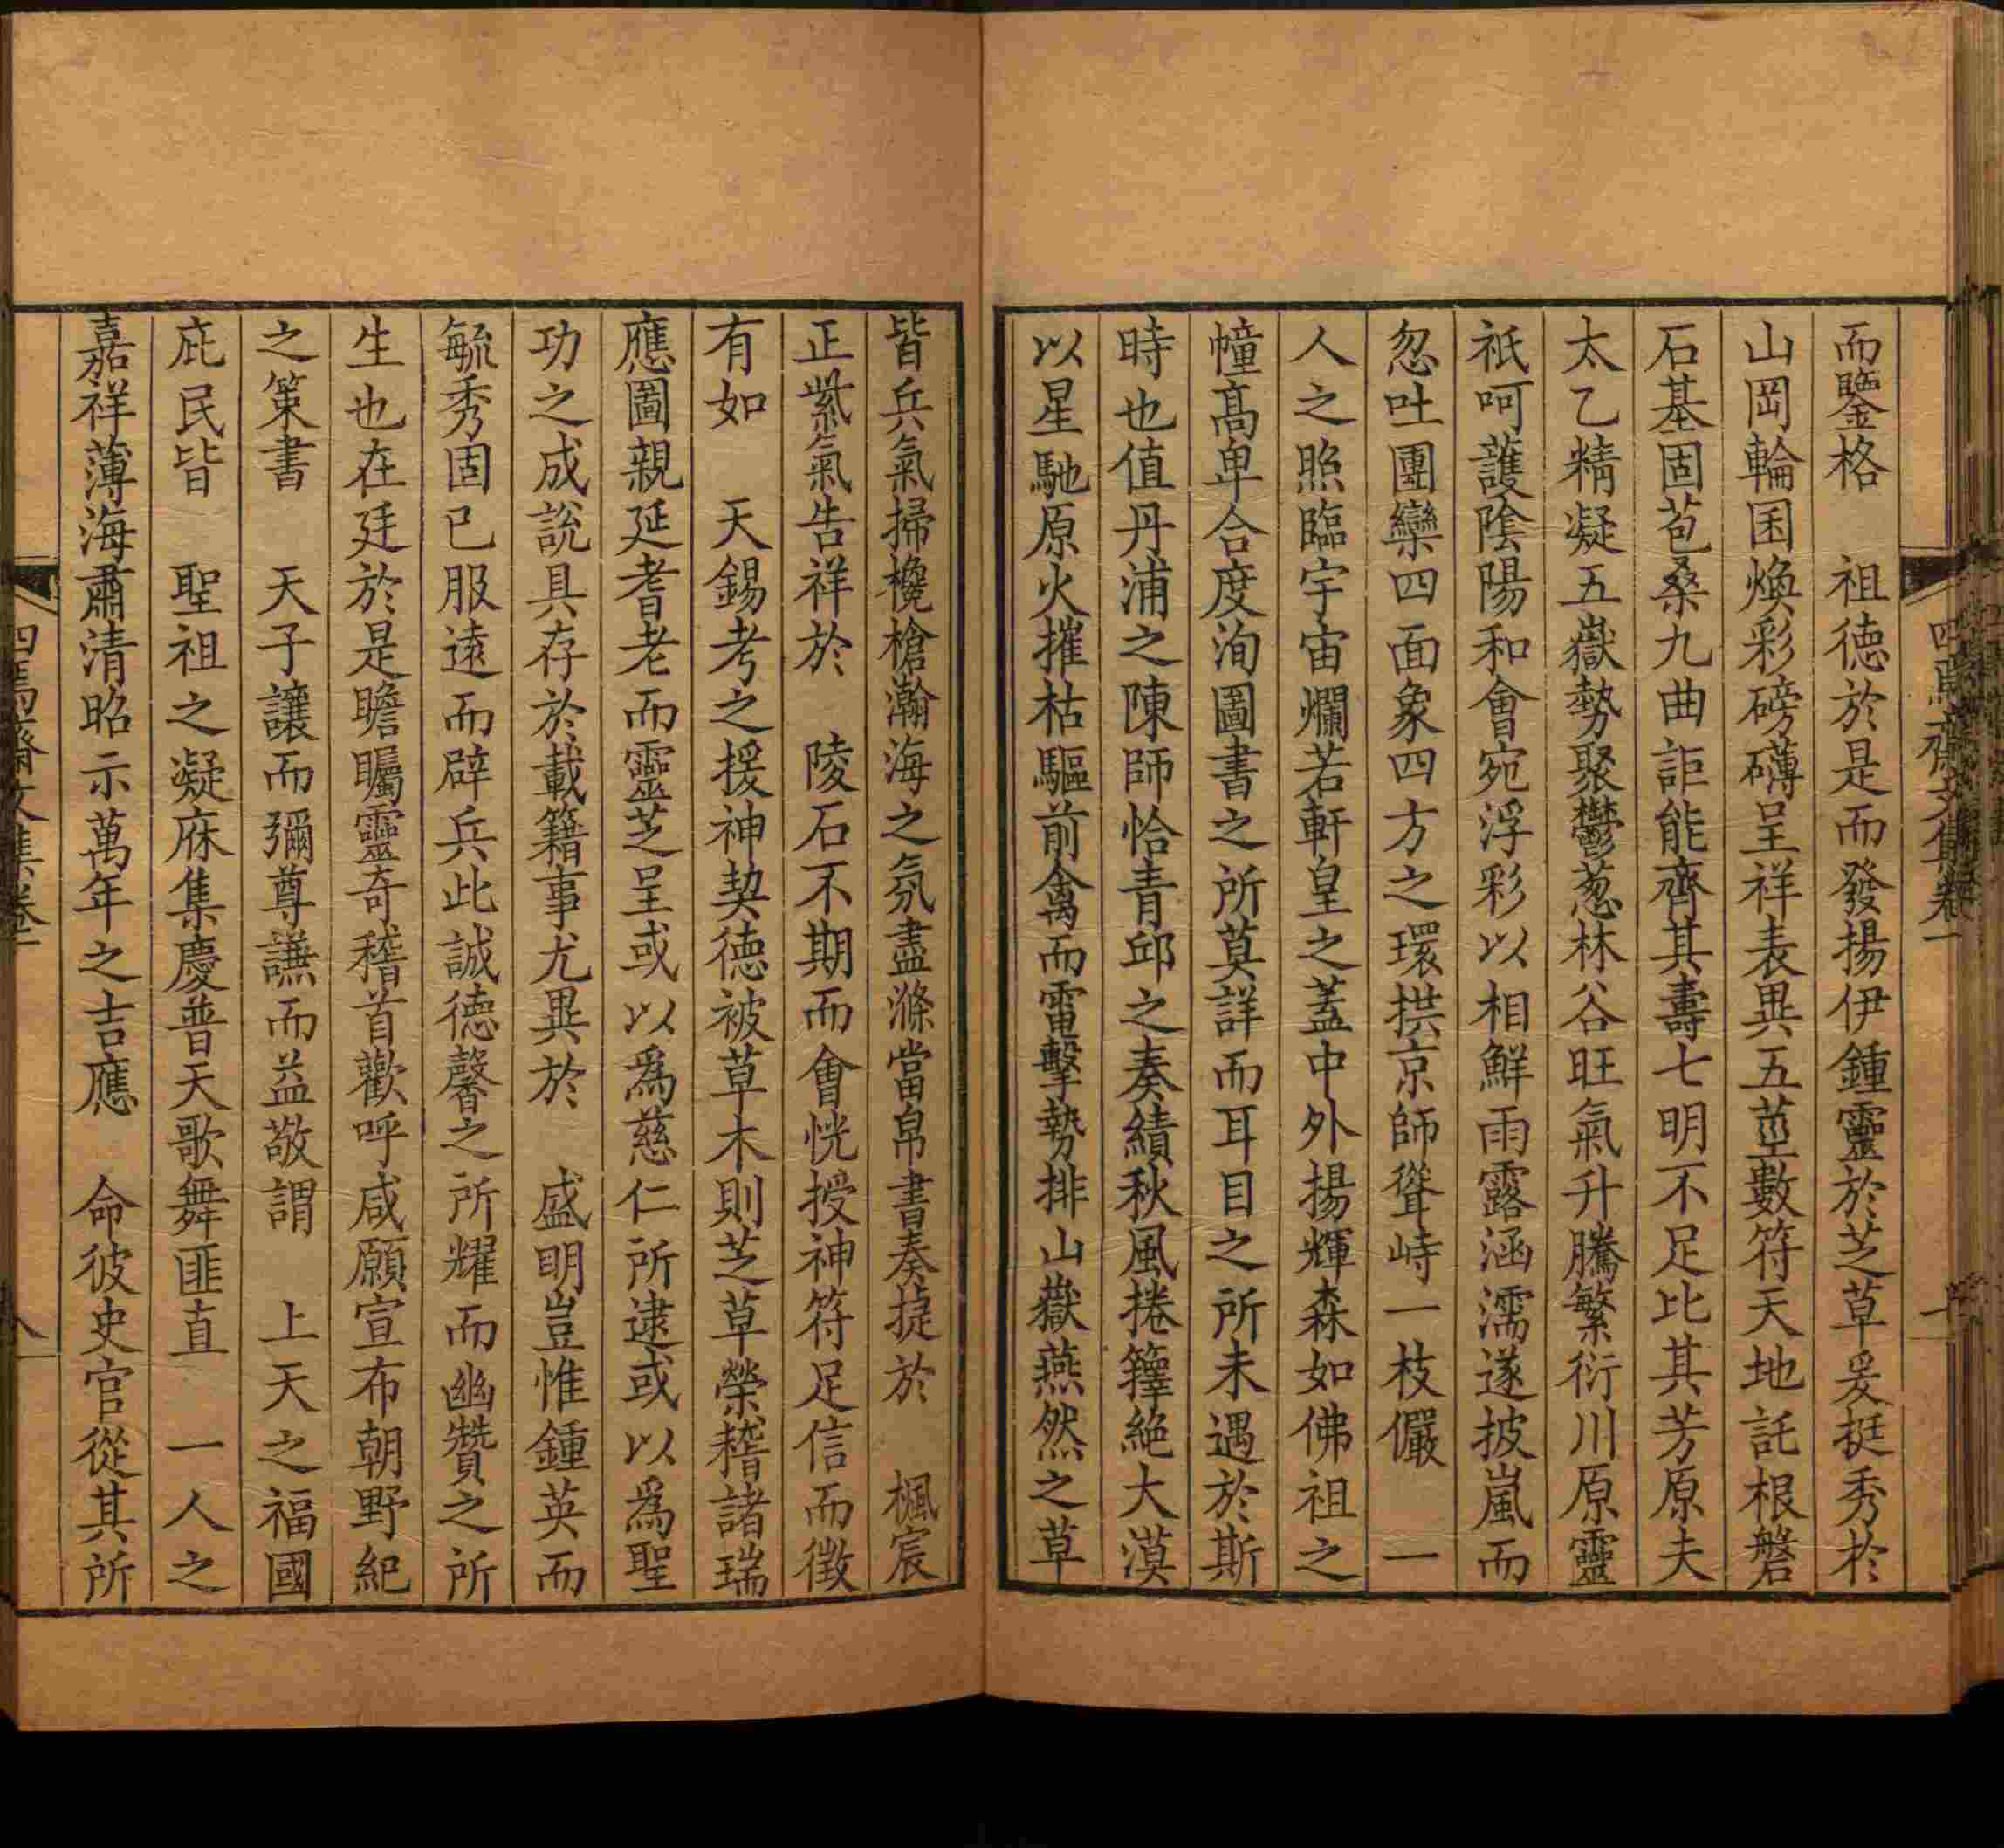 而鑒格　祖德於是而發揚伊鍾靈於芝草爰挺秀於
山岡輪囷煥彩磅礴呈祥表異五莖數符天地託根磐
石基固苞桑九曲詎能齊其壽七明不足比其芳原夫
太乙精凝五嶽勢聚鬱葱林谷旺氣升騰繁衍川原靈
祇呵護陰陽和會宛浮彩以相鮮雨露涵濡遂披嵐而
忽吐團欒四面象四方之環拱京師聳峙一枝儼　一
人之照臨宇宙爛若軒皇之蓋中外揚輝森如佛祖之
幢高卑合度洵圖書之所莫詳而耳目之所未遇於斯
時也值丹浦之陳師恰青邱之奏績秋風捲籜絕大漠
以星馳原火摧枯驅前禽而電擊勢排山嶽燕然之草
皆兵氣掃欃槍瀚海之氛盡滌當帛書奏捷於　楓宸
正紫氣告祥於　陵石不期而會恍授神符足信而徵
有如　天錫考之援神契德被草木則芝草榮稽諸瑞
應圖親延耆老而靈芝呈或以爲慈仁所逮或以爲聖
功之成說具存於載籍事尤異於　盛明豈惟鍾英而
毓秀固已服遠而辟兵此誠德馨之所耀而幽贊之所
生也在廷於是瞻矚靈奇稽首歡呼咸願宣布朝野紀
之策書　天子讓而彌尊謙而益敬謂　上天之福國
庇民皆　聖祖之凝庥集慶普天歌舞匪直　一人之
嘉祥薄海肅清昭示萬年之吉應　命彼史官從其所
四焉齋文集卷一
八